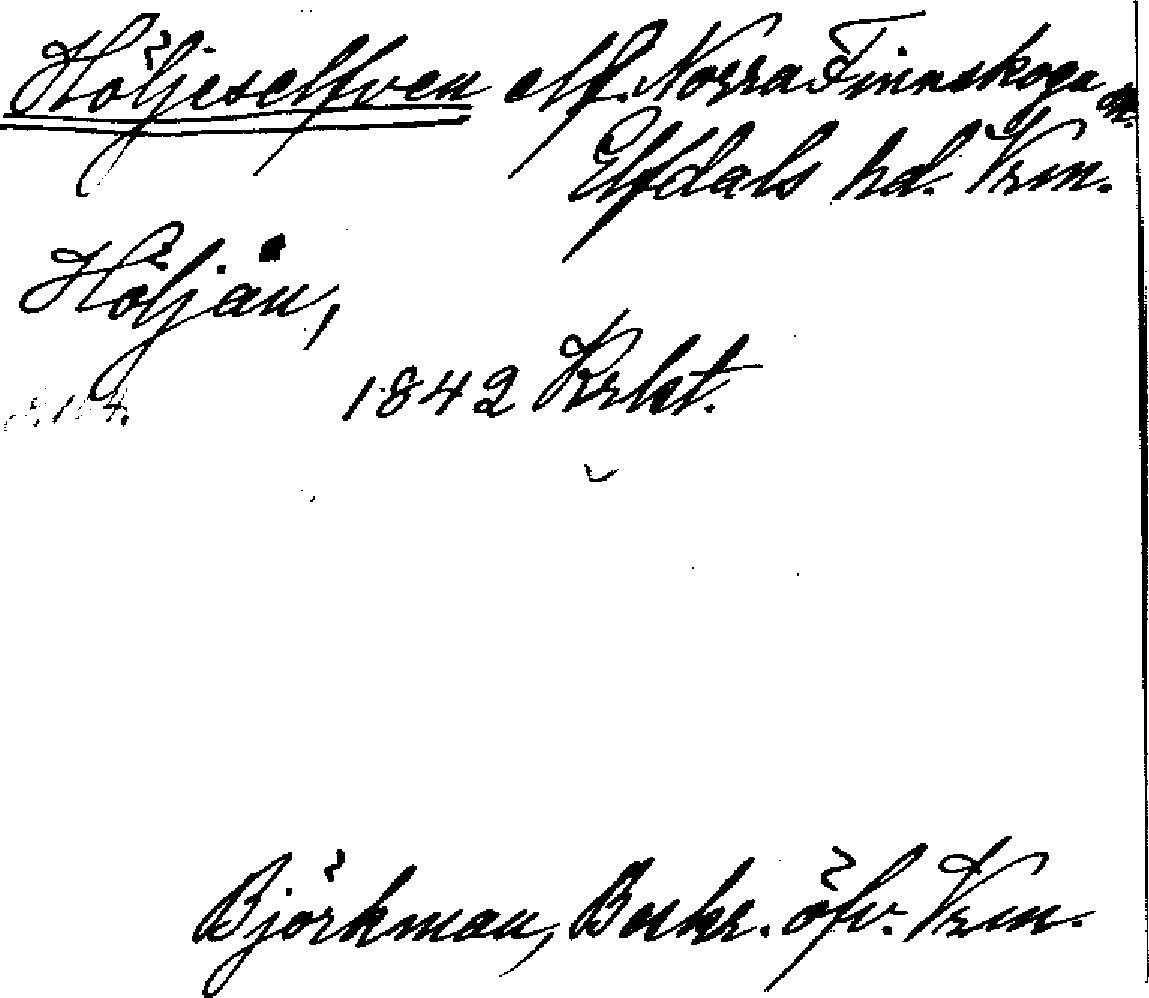 Höljeselfven elf. Norra Finnskoga
Elfdals hd. Vrm.
Höljån,
1842 Krkt.
Björkman, Beskr. öfv. Vrm.